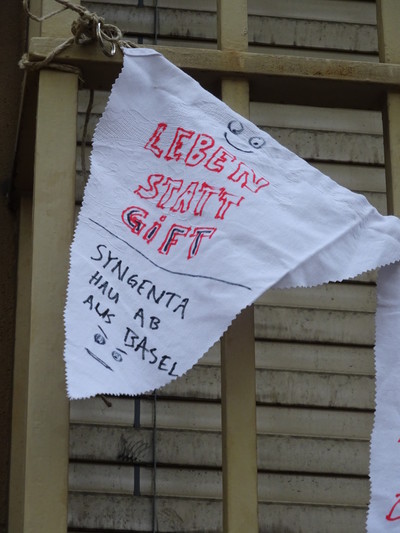 LEBEN
STATT
GiFT
SYNGENTA
HAU AB
AUS BASEL